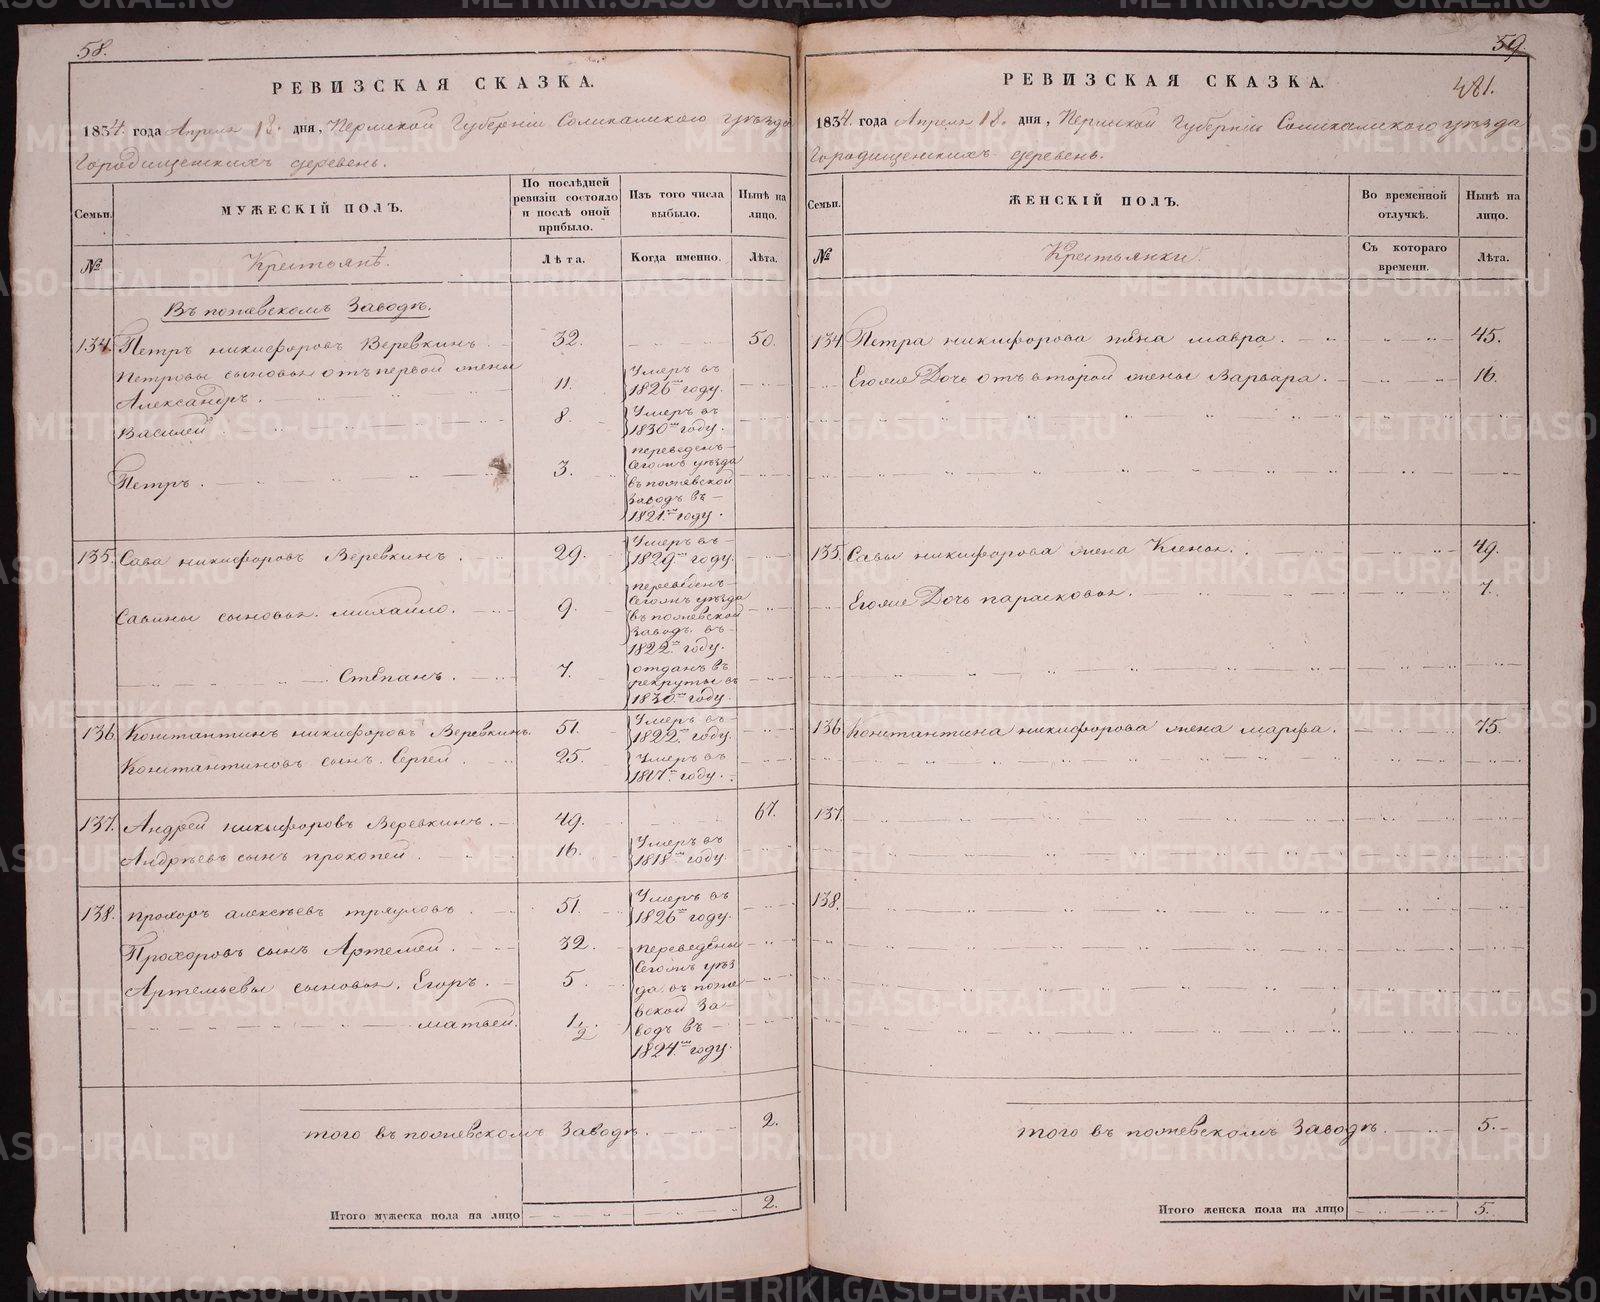 58.
РЕВИЗСКАЯ СКАЗКА.
1834. года Апреля 18. дня, Пермской Губерніи Соликамскаго уѣзда
Городищенскихъ деревень.
Семьи.
МУЖЕСКІЙ ПОЛЪ.
По послѣдней ревизіи состояло и послѣ оной прибыло.
Изъ того числа выбыло.
Нынѣ на лицо.
№
Крестьянѣ.
Лѣта.
Когда именно.
Лѣта.
Въ пожевскомъ Заводѣ.
134. Петръ никифоровъ Веревкинъ 32. 50.
Петровы сыновья отъ первой жены
Александръ. 11. Умеръ въ 1826мъ году.
Василей 8. Умеръ въ 1830мъ году.
Петръ. 3. переведенъ сегожъ уѣзда въ пожевской Заводъ въ 1821.мъ году.
135. Сава никифоровъ Веревкинъ. 29. Умеръ въ 1829мъ году.
Савины сыновья. михайло. 9. переведенъ сегожъ уѣзда въ пожевской Заводъ въ 1822.мъ году.
Степанъ. 7. отданъ въ рекруты въ 1830.мъ году.
136. Константинъ никифоровъ Веревкинъ. 51. Умеръ въ 1822.мъ году.
Константиновъ сынъ. Сергей. 25. Умеръ въ 1817.мъ году.
137. Андрей никифоровъ Веревкинъ. 49. 67.
Андрѣевъ сынъ прокопей. 16. Умеръ въ 1818мъ году.
138. прохоръ алексѣевъ 51. Умеръ въ 1826мъ году.
Прохоровъ сынъ Артемей. 32. переведены сегожъ уѣзда въ пожевской Заводъ въ 1824.мъ году.
Артемьевы сыновья. Егоръ. 5.
матвей. 1 1/2.
того въ пожевскомъ Заводѣ. 2.
Итого мужеска пола на лицо 2.
59.
481.
РЕВИЗСКАЯ СКАЗКА.
1834. года Апреля 18. дня, Пермской Губерніи Соликамскаго уѣзда
Городищенскихъ деревень.
Семьи.
ЖЕНСКІЙ ПОЛЪ.
Во временной отлучкѣ.
Нынѣ на лицо.
№
Крестьянки.
Съ котораго времени.
Лѣта.
134 Петра никифорова жена мавра. 45.
Егоже Дочь отъ второй жены Варвара. 16.
135. Савы никифорова жена 49.
Егоже Дочь парасковья. 7.
136 Константина никифорова жена марфа. 75.
137.
138.
того въ пожевскомъ Заводѣ. 5.
Итого женска пола на лицо 5.
METRIKI.GASO-URAL.RU